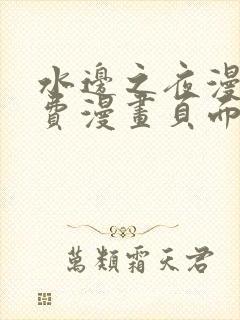 水邊之夜漫
費漫畫頁面
萬類霜天君